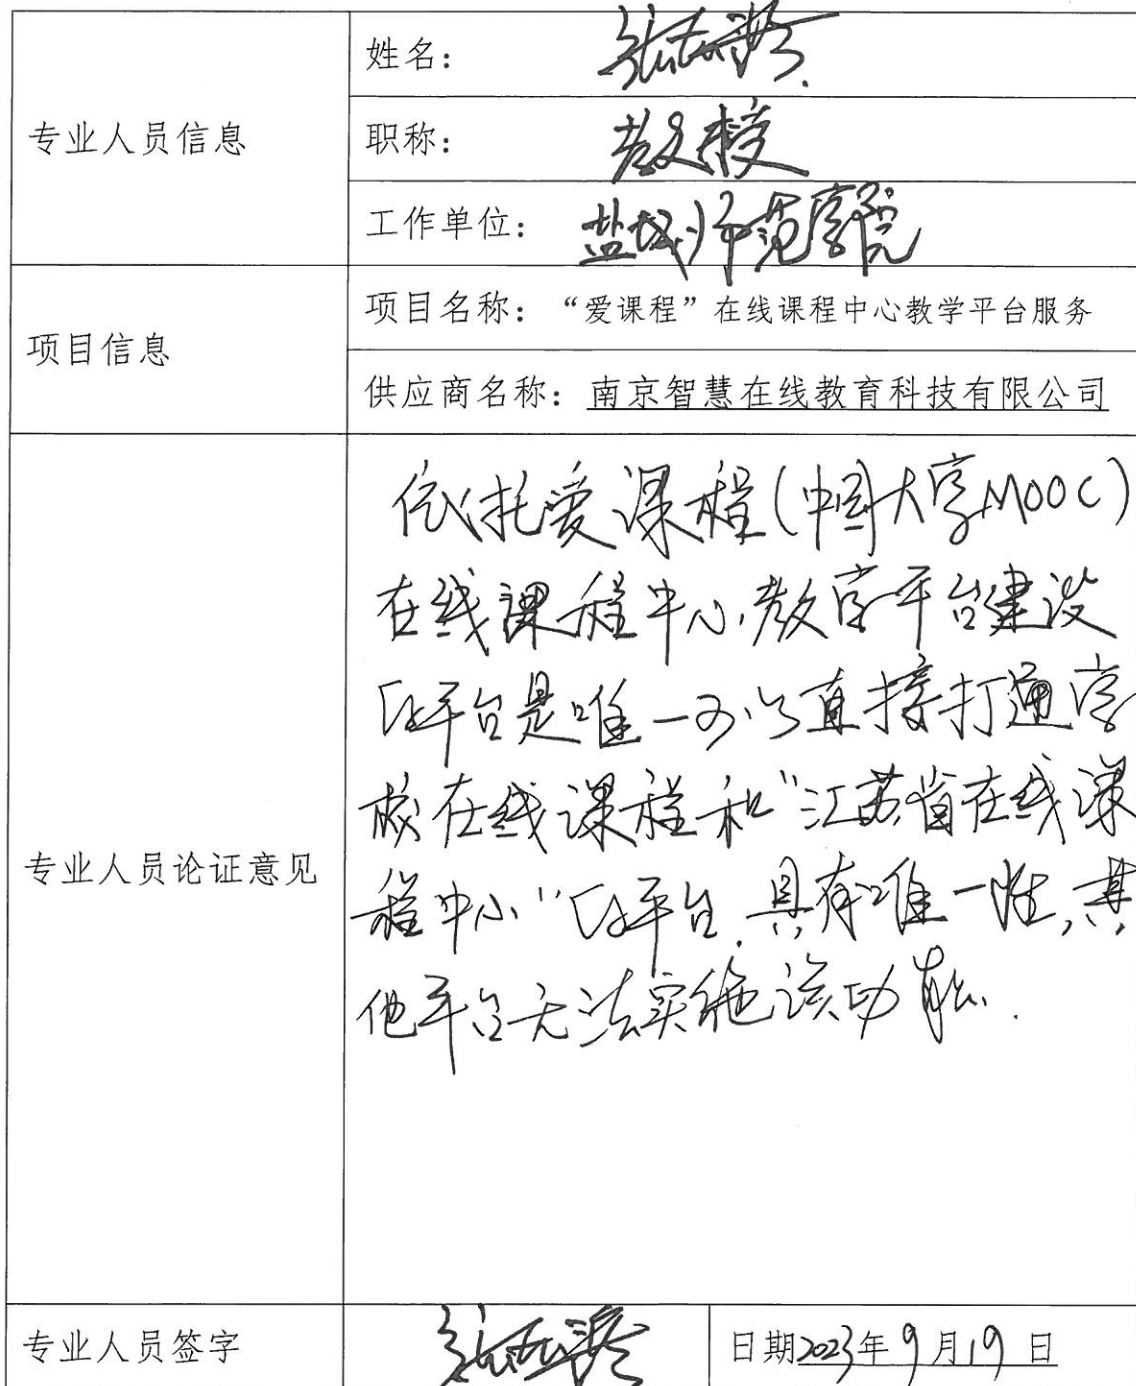 专业人员信息
姓名：
职称： 教授
工作单位： 盐城师范学院
项目信息
项目名称：“爱课程”在线课程中心教学平台服务
供应商名称：南京智慧在线教育科技有限公司
专业人员论证意见
依托爱课程(中国大学MOOC)
在线课程中心教学平台建设
平台是唯一可以直接打通学
校在线课程和"江苏省在线课
程中心"平台,具有唯一性,其
他平台无法实施该功能.
专业人员签字
日期2023年9月19日